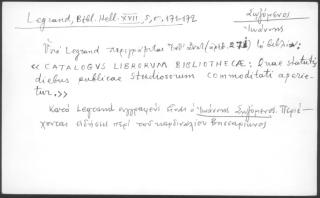 Legrand, Bibl. Hell. XVII, 5, σ. 171-172
Συλόμενος
Ἰωάννης
Ὑπὸ Legrand περιγράφεται
« CATALOGUS LIBRORUM BIBLIOTHECAE: Quae statutis
diebus publicae Studiosorum commoditati aperie-
tur.»
Κατὰ Legrand συγγραφεὺς εἶναι ὁ Ἰωάννης Συλόμενος. Περιέ-
χονται εἰδήσεις περὶ τοῦ καρδιναλίου Βησσαρίωνος